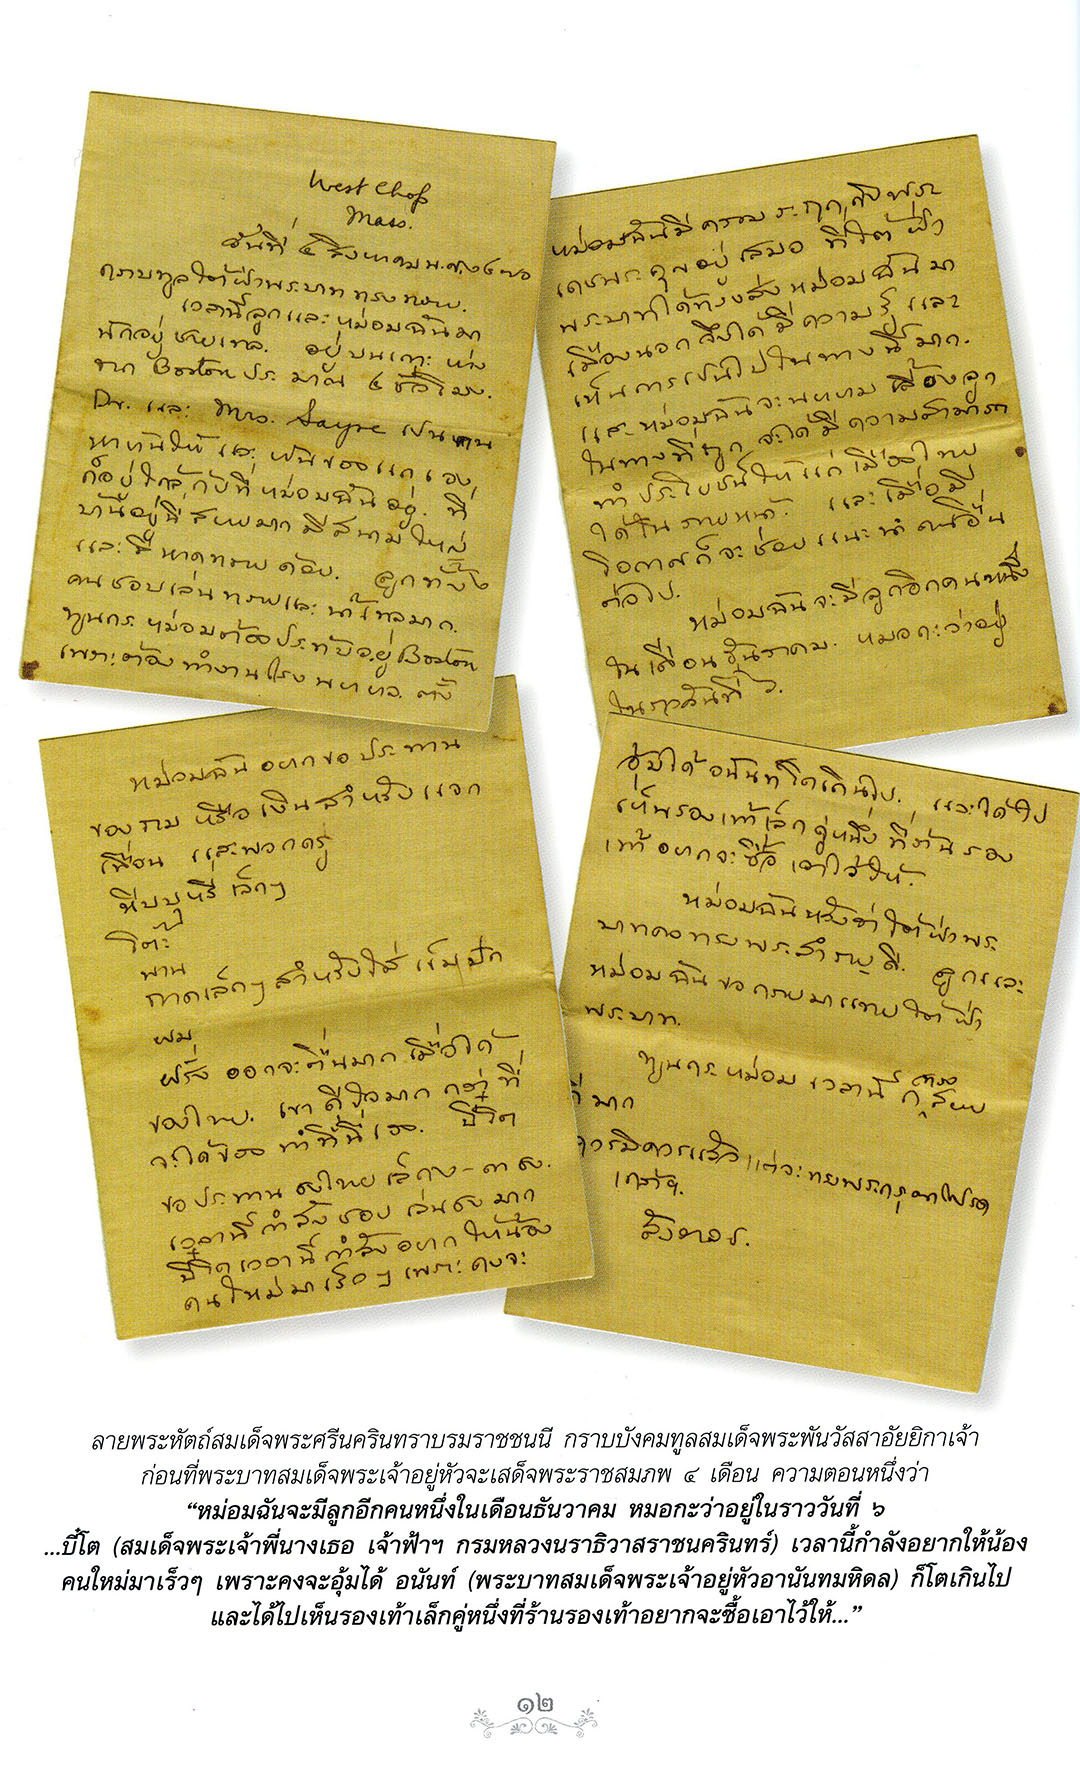 West Chop
Mass.
วันที่ ๔ สิงหาคม พ.ศ.
กราบทูลใต้ฝ่าพระบาท ทรงทราบ.
เวลานี้ลูกและหม่อมฉันมา
พักอยู่ชายทเล. อยู่บนเกาะ ห่าง
จาก Boston ประมาณ ๔ ชั่วโมง.
Dr. และ Mrs. Sayre เปนคน
หาบ้านให้ และ บ้านของแกเอง
ก็อยู่ใกล้กับที่หม่อมฉันอยู่. ที่
บ้านี้อยู่ที่สบายมาก มีสนามใหญ่
และมีหาดทรายด้วย. ลูกทั้ง ๒
คนชอบเล่นทรายและน้ำโคลมาก.
ทูนกระหม่อมต้องประทับอยู่ Boston
เพราะต้องทำงานโรงพยาบาล. ตั้ง
หม่อมฉันมีความระฤกถึงพระ
เดชพระคุณอยู่เสมอ ที่ใต้ฝ่า
พระบาทได้ทรงส่งหม่อมฉันมา
เมืองนอกจึงได้มีความรู้และ
เห็นการเปนไปในทางนี้มาก.
และหม่อมฉันจะพยายามเลี้ยงลูก
ในทางที่ถูก จะได้มีความสามารถ
ทำประโยชน์ให้แก่เมืองไทย
ได้ในภายหน้า. และเมื่อมี
โอกาศก็จะช่วยแนะนำคนอื่น
ต่อไป.
หม่อมฉันจะมีลูกอีกคนหนึ่ง
ในเดือนธันวาคม. หมอกะว่าอยู่
ในราววันที่ ๖.
หม่อมฉันอยากขอประทาน
ของถม หรือเงินสำหรับแจก
เพื่อน และพวกครู
หีบบุหรี่เล็กๆ
โต๊ะ
พาน
ถาดเล็กๆ สำหรับใส่เข็มปัก
ผม
ฝรั่งออกจะตื่นมากเมื่อได้
ของไทย. เขาดีใจมากกว่าที่
จะได้ของทำที่นี่เอง. บี๋โต
ขอประทานธงไทยเล็กๆ ๒-๓ ธง.
เวลานี้กำลังชอบเล่นธงมาก
บี๋โตเวลานี้กำลังอยากให้น้อง
คนใหม่มาเร็วๆ เพราะคงจะ
อุ้มได้ อนันทโตเกินไป. และได้ไป
เห็นรองเท้าเล็กคู่หนึ่งที่ร้านรอง
เท้าอยากจะซื้อเอาไว้ให้.
หม่อมฉันหวังว่าใต้ฝ่าพระ
บาทคงทรงพระสำราญดี. ลูกและ
หม่อมฉันขอกราบมาแทบใต้ฝ่า
พระบาท.
ทูนกระหม่อมเวลานี้ก็ทรงสบาย
ดีมาก
ควรมิควรแล้วแต่จะทรงพระกรุณาโปรด
เกล้าฯ.
สังวาลย์.
ลายพระหัตถ์สมเด็จพระศรีนครินทราบรมราชชนนี กราบบังคมทูลสมเด็จพระพันวัสสาอัยยิกาเจ้า
ก่อนที่พระบาทสมเด็จพระเจ้าอยู่หัวจะเสด็จพระราชสมภพ ๔ เดือน ความตอนหนึ่งว่า
“หม่อมฉันจะมีลูกอีกคนหนึ่งในเดือนธันวาคม หมอกะว่าอยู่ในราววันที่ ๖
...บี๋โต (สมเด็จพระเจ้าพี่นางเธอ เจ้าฟ้าฯ กรมหลวงนราธิวาสราชนครินทร์) เวลานี้กำลังอยากให้น้อง
คนใหม่มาเร็วๆ เพราะคงจะอุ้มได้ อนันท์ (พระบาทสมเด็จพระเจ้าอยู่หัวอานันทมหิดล) ก็โตเกินไป
และได้ไปเห็นรองเท้าเล็กคู่หนึ่งที่ร้านรองเท้าอยากจะซื้อเอาไว้ให้...”
๑๒